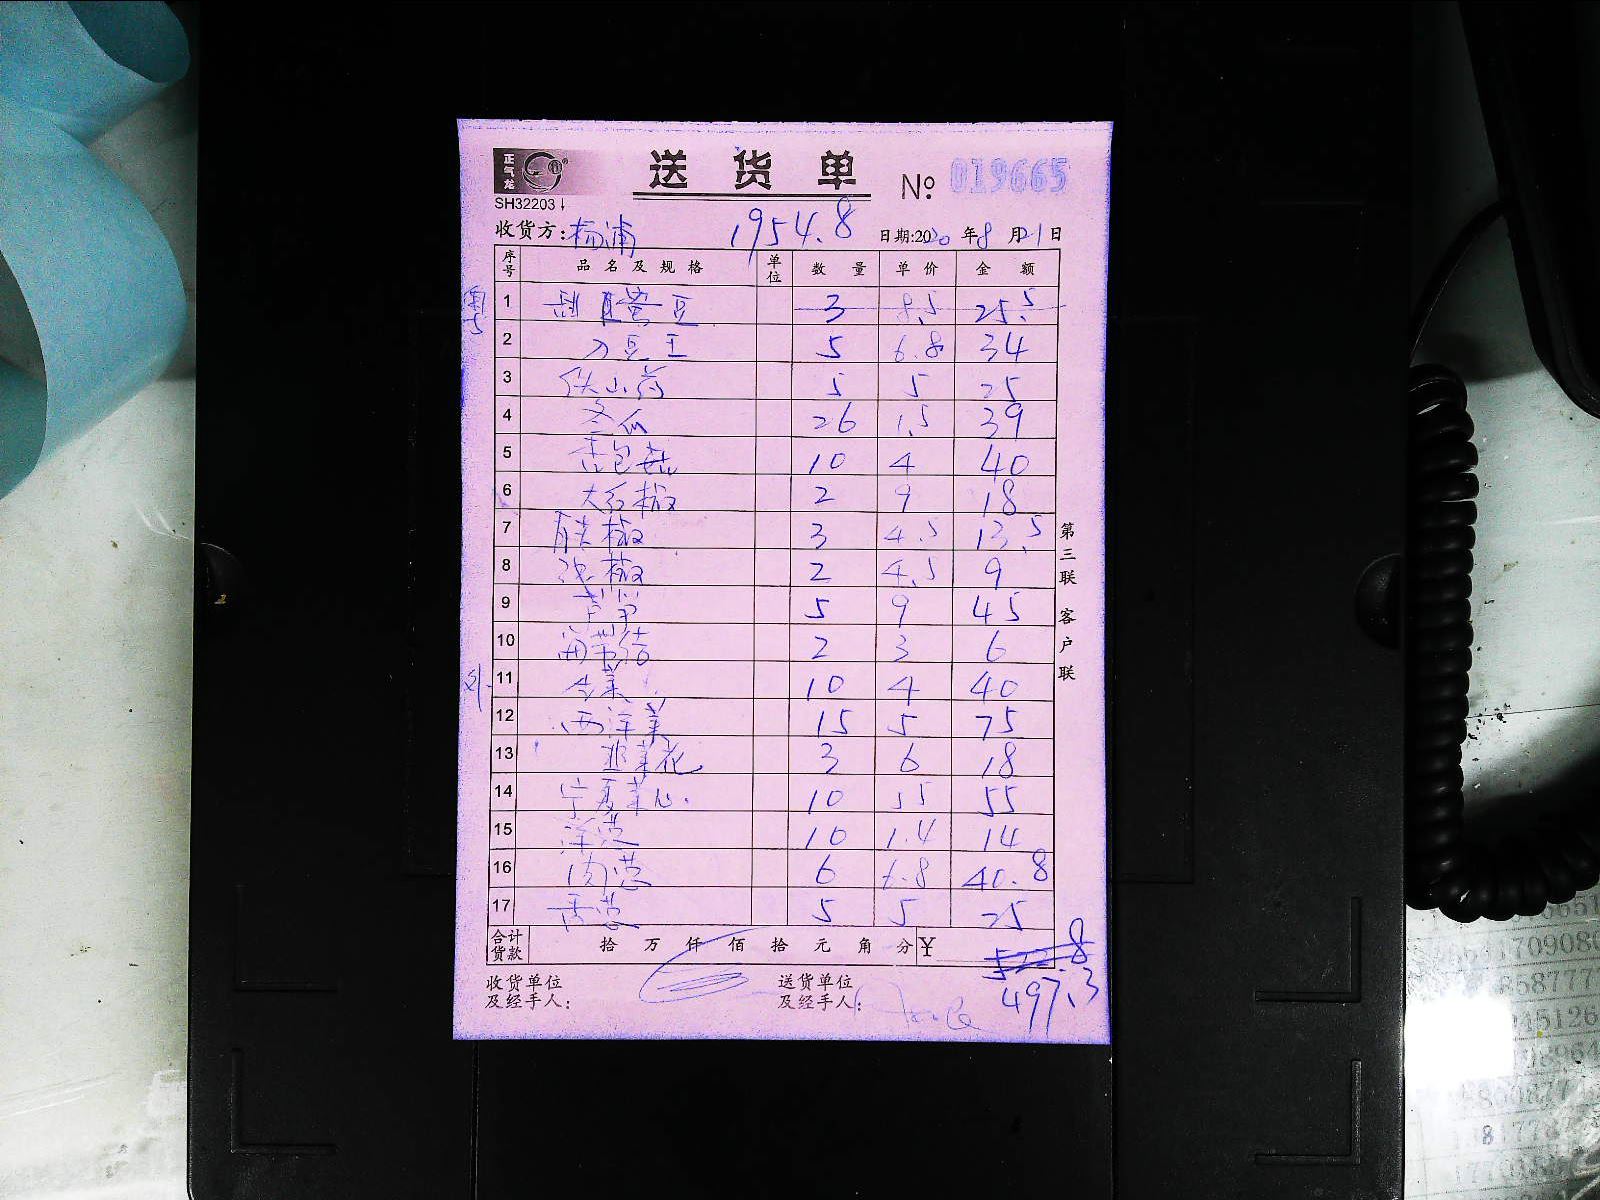 正气龙
送货单 № 019665
SH32203
收货方：杨浦 1954.8 日期：2020年8月21日
序号 品名及规格 单位 数量 单价 金额
1 豆 3 8.5 25.5
2 刀豆王 5 6.8 34
3 铁山药 5 5 25
4 冬瓜 26 1.5 39
5 杏包菇 10 4 40
6 大红椒 2 9 18
7 青尖椒 3 4.5 13.5
8 椒 2 4.5 9
9 芦笋 5 9 45
10 结 2 3 6
11 菜 10 4 40
12 西洋菜 15 5 75
13 韭菜花 3 6 18
14 宁夏菜心 10 5.5 55
15 洋葱 10 1.4 14
16 葱 6 6.8 40.8
17 香葱 5 5 25
合计货款 拾 万 仟 佰 拾 元 角 分 ¥ 522.8
497.3
收货单位及经手人：
送货单位及经手人：
第三联 客户联